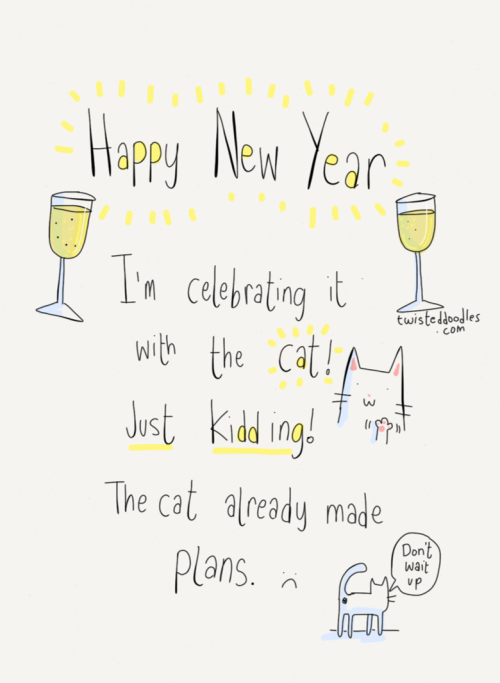 Happy New Year
I'm celebrating it
twisteddoodles
.com
with the cat!
Just Kidding!
The cat already made
plans. :(
Don't
wait
up